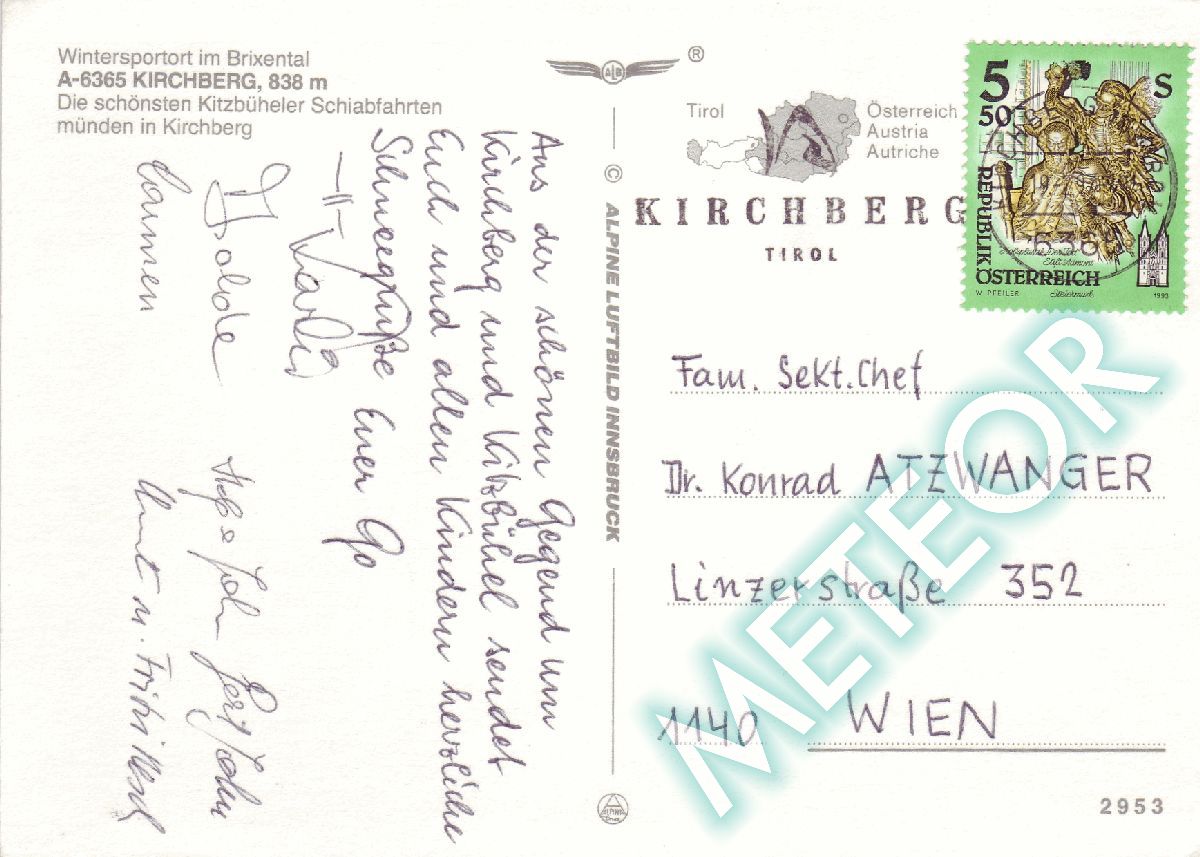 Wintersportort im Brixental
A-6365 KIRCHBERG, 838 m
Die schönsten Kitzbüheler Schiabfahrten
münden in Kirchberg
Aus der schönen Gegend um
Kirchberg und Kitzbühel sendet
Euch und allen Kindern herzliche
Schneegrüße Euer
Carmen
© ALPINE LUFTBILD INNSBRUCK
ALB
®
Tirol
Österreich
Austria
Autriche
KIRCHBERG
TIROL
5 S
50
REPUBLIK
ÖSTERREICH
W. PFEILER
Steiermark
1993
6365
Fam. Sekt.Chef
Dr. Konrad ATZWANGER
Linzerstraße 352
1140 WIEN
METEOR
2953